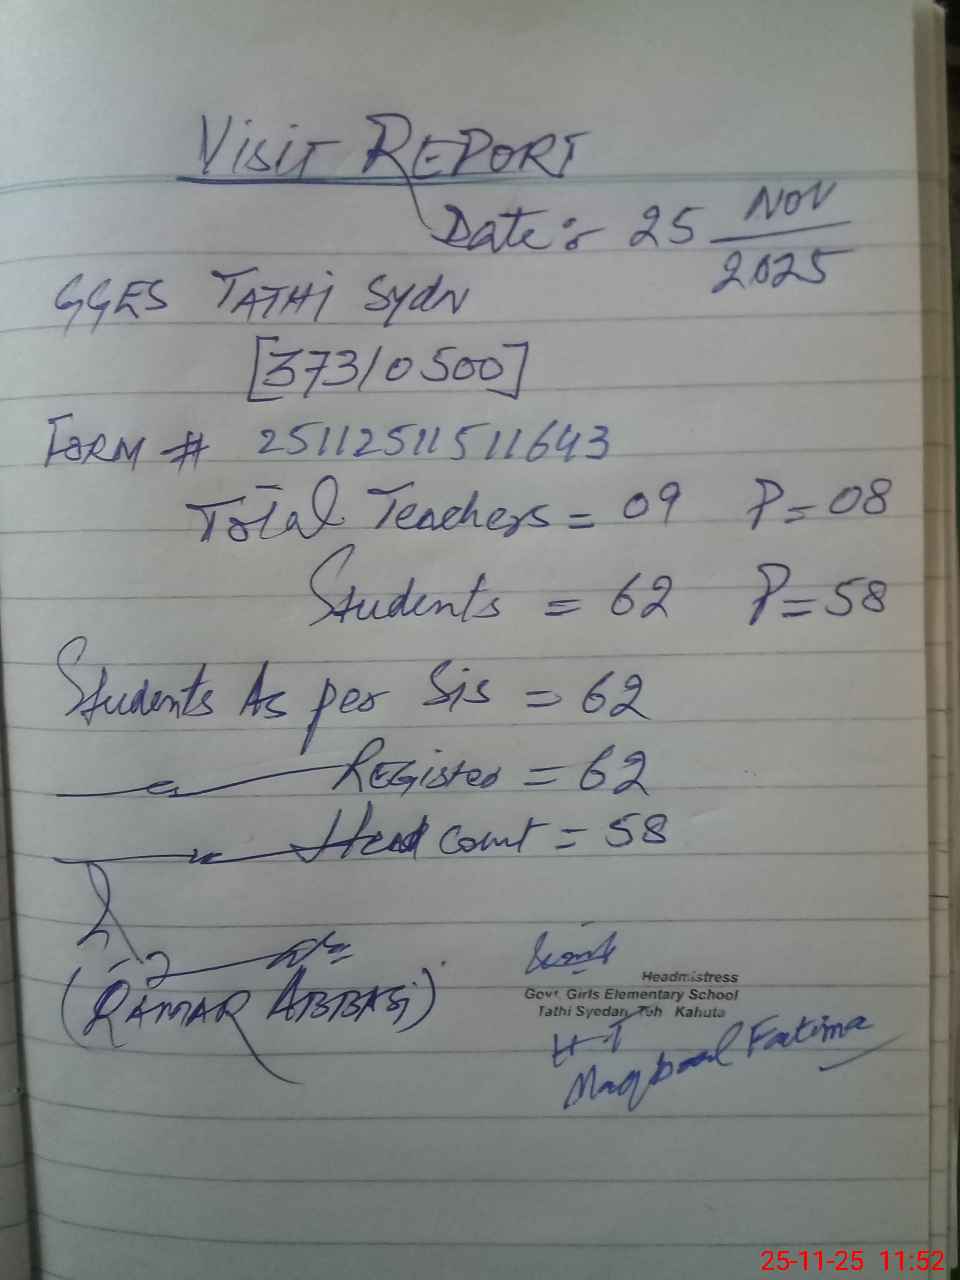 Visit REPORT
Date:- 25 NOV
2025
GGES TATHi SydN
[37310500]
FORM # 25112511511643
Total Teachers = 09 P = 08
Students = 62 P = 58
Students As per Sis = 62
Register = 62
Head count = 58
(QAMAR ABBASi)
Headmistress
Govt. Girls Elementary School
Tathi Syedan, Teh Kahuta
H-T
Maqbool Fatima
25-11-25 11:52